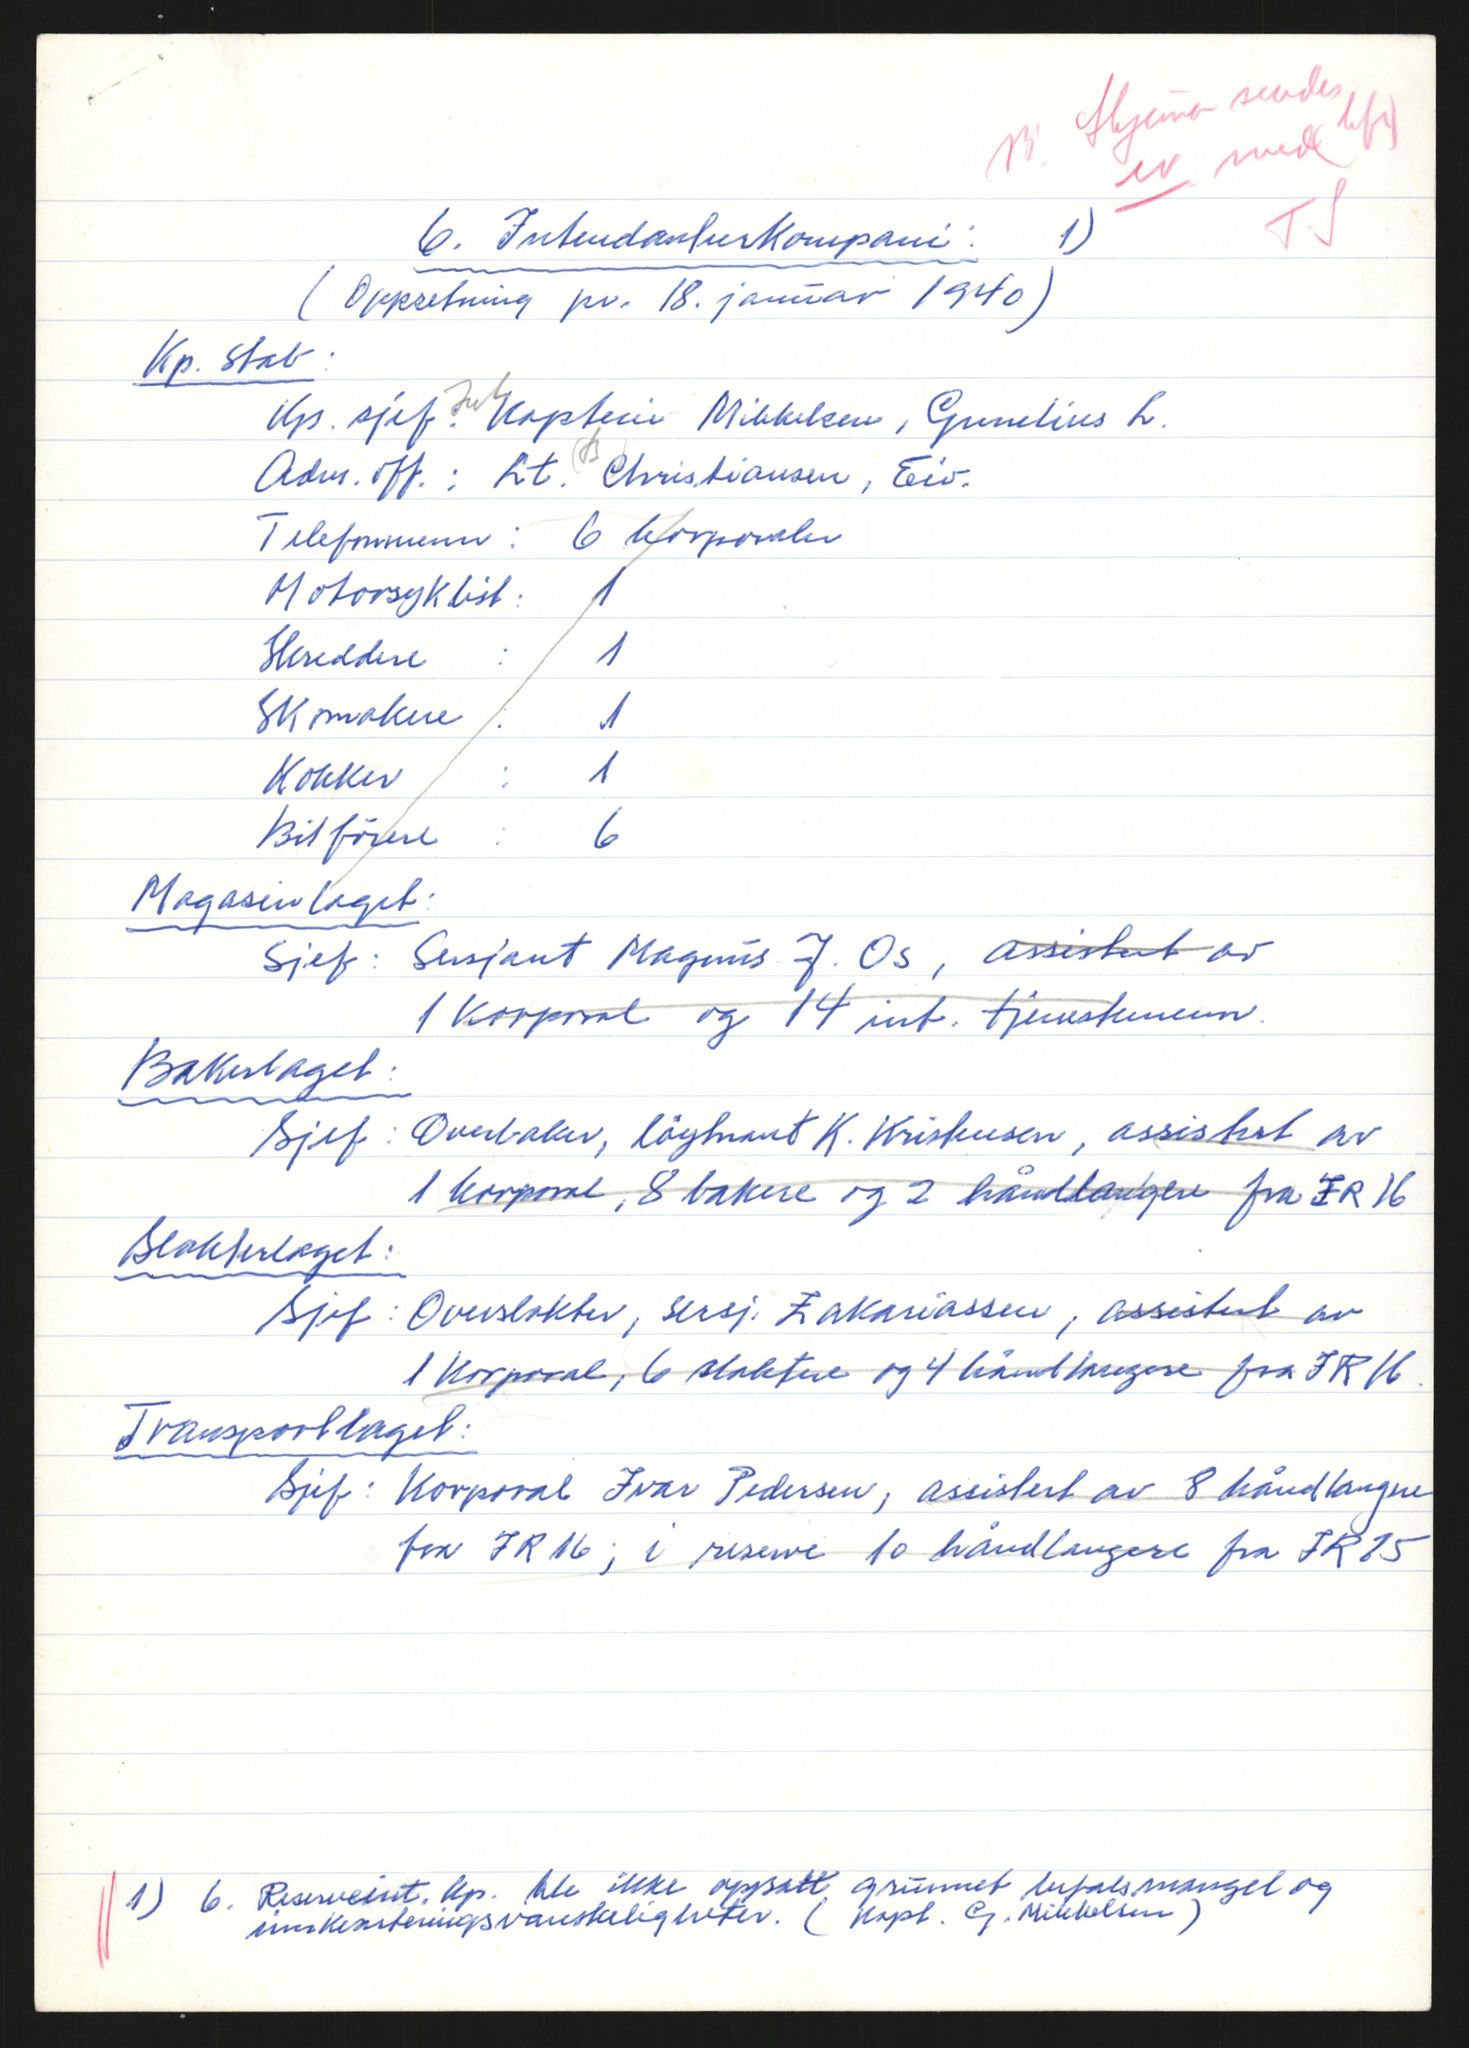 Skjema sendes
ev. med
T.S
6. Intendanturkompani: 1)
(Oppsetning pr. 18. januar 1940)
Kp. stab:
Kp. sjef: Int Kaptein Mikkelsen, Gunelius L.
Adm. off.: Lt. Christiansen, Eiv.
Telefonmenn: 6 korporaler
Motorsyklist: 1
Skreddere : 1
Skomakere : 1
Kokker : 1
Bilförere : 6
Magasinlaget:
Sjef: Sersjant Magnus J. Os, assistert av
1 Korporal og 14 int. tjenestemenn.
Bakerlaget:
Sjef: Overbaker, löytnant K. Kristensen, assistert av
1 korporal, 8 bakere og 2 håndlangere fra IR 16
Slakterlaget:
Sjef: Overslakter, sersj. Zakariassen, assistert av
1 Korporal, 6 slaktere og 4 håndlangere fra IR 16.
Transportlaget:
Sjef: Korporal Ivar Pedersen, assistert av 8 håndlangere
fra IR 16; i reserve 10 håndlangere fra IR 15
1) 6. Reserveint. kp. ble ikke oppsatt grunnet befalsmangel og
innkvarteringsvanskeligheter. (Kapt. G. Mikkelsen)